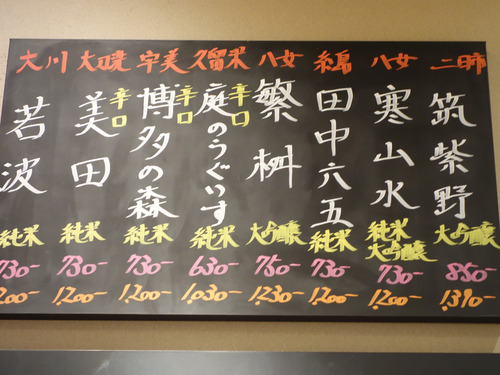 二日市
筑紫野
大吟醸
850-
1.390-
八女
寒山水
純米
大吟醸
730-
1.200-
糸島
田中六五
純米
730-
1.200-
八女
繁桝
大吟醸
750-
1.230-
久留米
辛口
庭のうぐいす
純米
630-
1.030-
宇美
辛口
博多の森
純米
730-
1.200-
大刀洗
辛口
美田
純米
730-
1.200-
大川
若波
純米
730-
200-